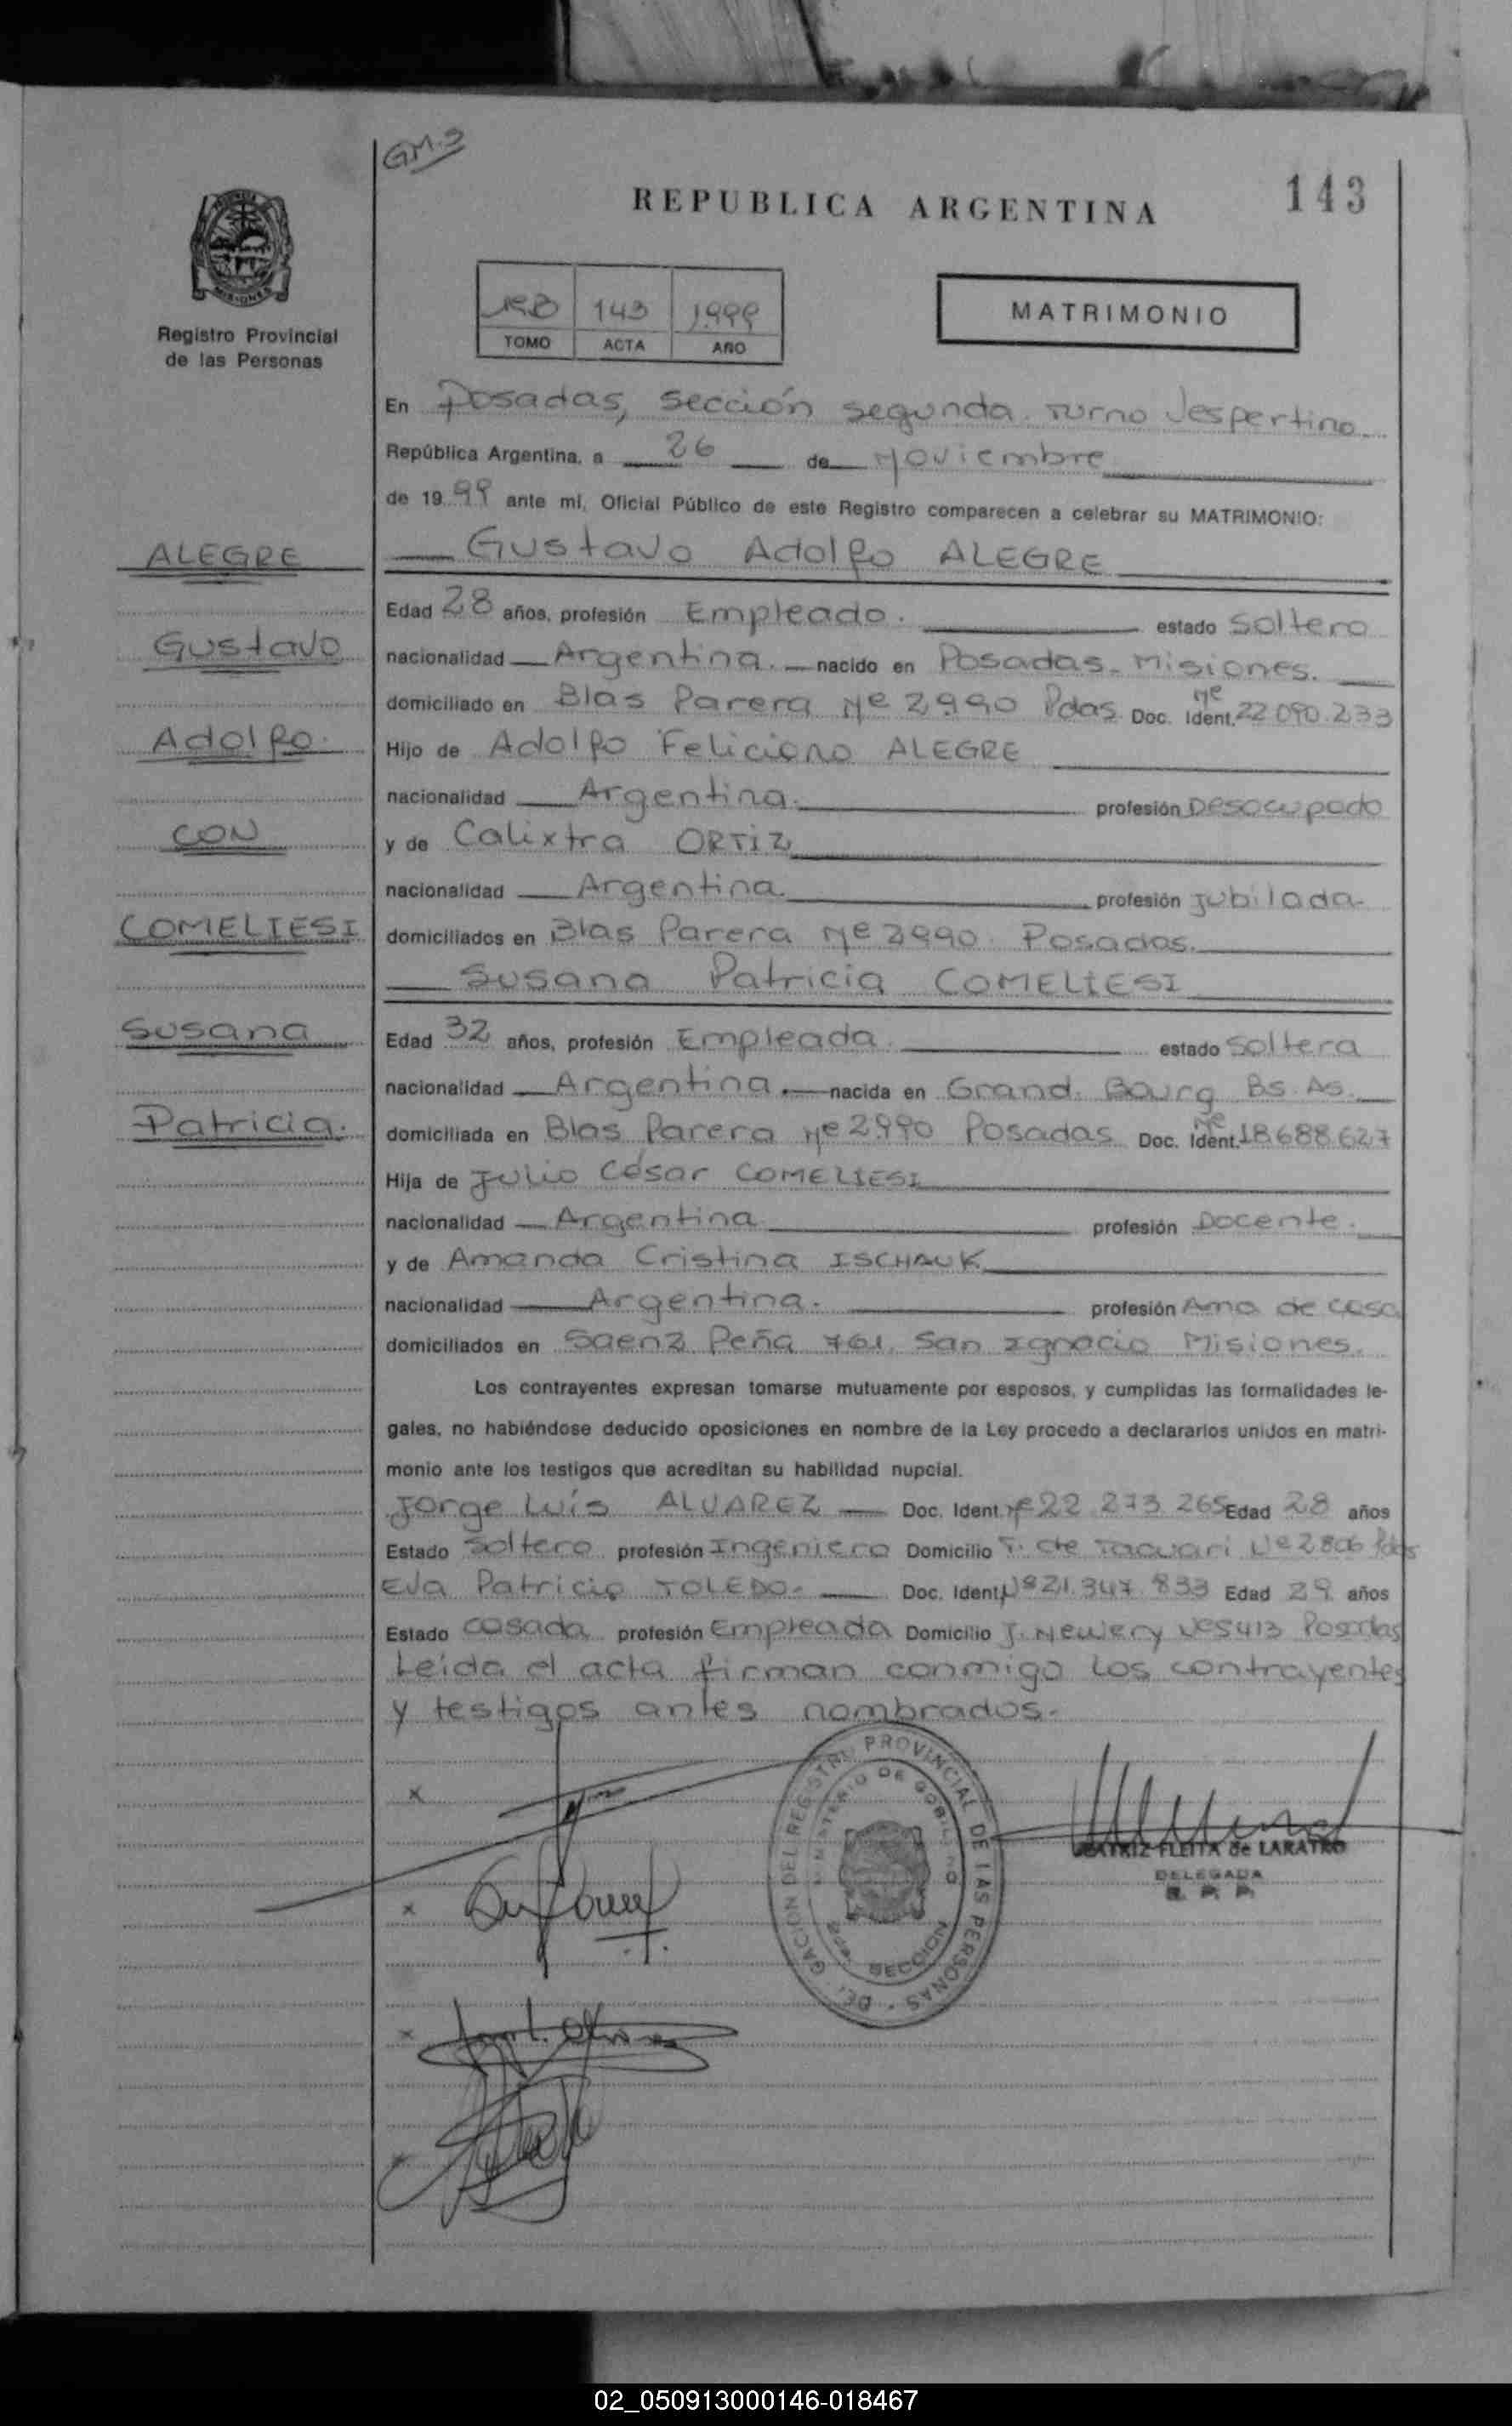 GM.3
REPUBLICA ARGENTINA
143
MISIONES
Registro Provincial
de las Personas
143 1999
TOMO ACTA AÑO
MATRIMONIO
En Posadas, sección segunda turno Vespertino
República Argentina, a 26 de Noviembre
de 1999 ante mí, Oficial Público de este Registro comparecen a celebrar su MATRIMONIO:
ALEGRE
Gustavo
Adolfo.
CON
COMELIESI
Susana
Patricia.
Gustavo Adolfo ALEGRE
Edad 28 años, profesión Empleado. estado Soltero
nacionalidad Argentina. nacido en Posadas - Misiones.
domiciliado en Blas Parera Nº 2990 Pdas. Doc. Ident. Nº 22.090.233
Hijo de Adolfo Feliciano ALEGRE
nacionalidad Argentina. profesión Desocupado
y de Calixtra ORTIZ
nacionalidad Argentina. profesión jubilada-
domiciliados en Blas Parera Nº 2990. Posadas.
Susana Patricia COMELIESI
Edad 32 años, profesión Empleada estado Soltera
nacionalidad Argentina. nacida en Grand. Bourg Bs. As.
domiciliada en Blas Parera Nº 2990 Posadas Doc. Ident. Nº 18.688.627
Hija de Julio César COMELIESI
nacionalidad Argentina profesión Docente.
y de Amanda Cristina ISCHAUK
nacionalidad Argentina. profesión Ama de casa
domiciliados en Saenz Peña 761. San Ignacio Misiones.
Los contrayentes expresan tomarse mutuamente por esposos, y cumplidas las formalidades le-
gales, no habiéndose deducido oposiciones en nombre de la Ley procedo a declararlos unidos en matri-
monio ante los testigos que acreditan su habilidad nupcial.
Jorge Luís ALVAREZ Doc. Ident. Nº 22.273.265 Edad 28 años
Estado Soltero profesión Ingeniero Domicilio T. de Tacuari Nº 2806 Pdas
Eva Patricia TOLEDO- Doc. Ident. Nº 21.347.833 Edad 29 años
Estado casada profesión Empleada Domicilio J. Newery Nº 5413 Posadas
Leida el acta firman conmigo los contrayentes
y testigos antes nombrados.-
DELEGACION DEL REGISTRO PROVINCIAL DE LAS PERSONAS
MINISTERIO DE GOBIERNO
SECCION
BEATRIZ FLEITA de LARATRO
DELEGADA
R. P. P.
02_050913000146-018467